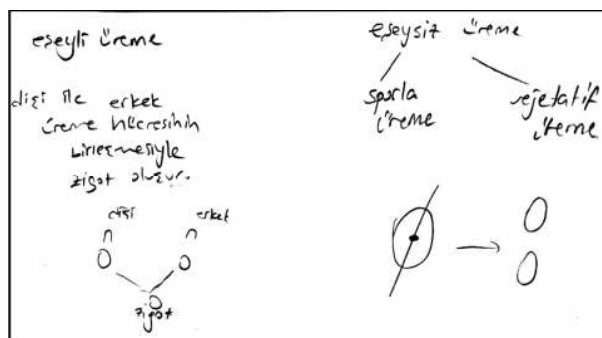 eşeyli üreme
dişi ile erkek
üreme hücresinin
birleşmesiyle
zigot oluşur.
dişi erkek
n n
zigot
eşeysiz üreme
sporla vejetatif
üreme üreme